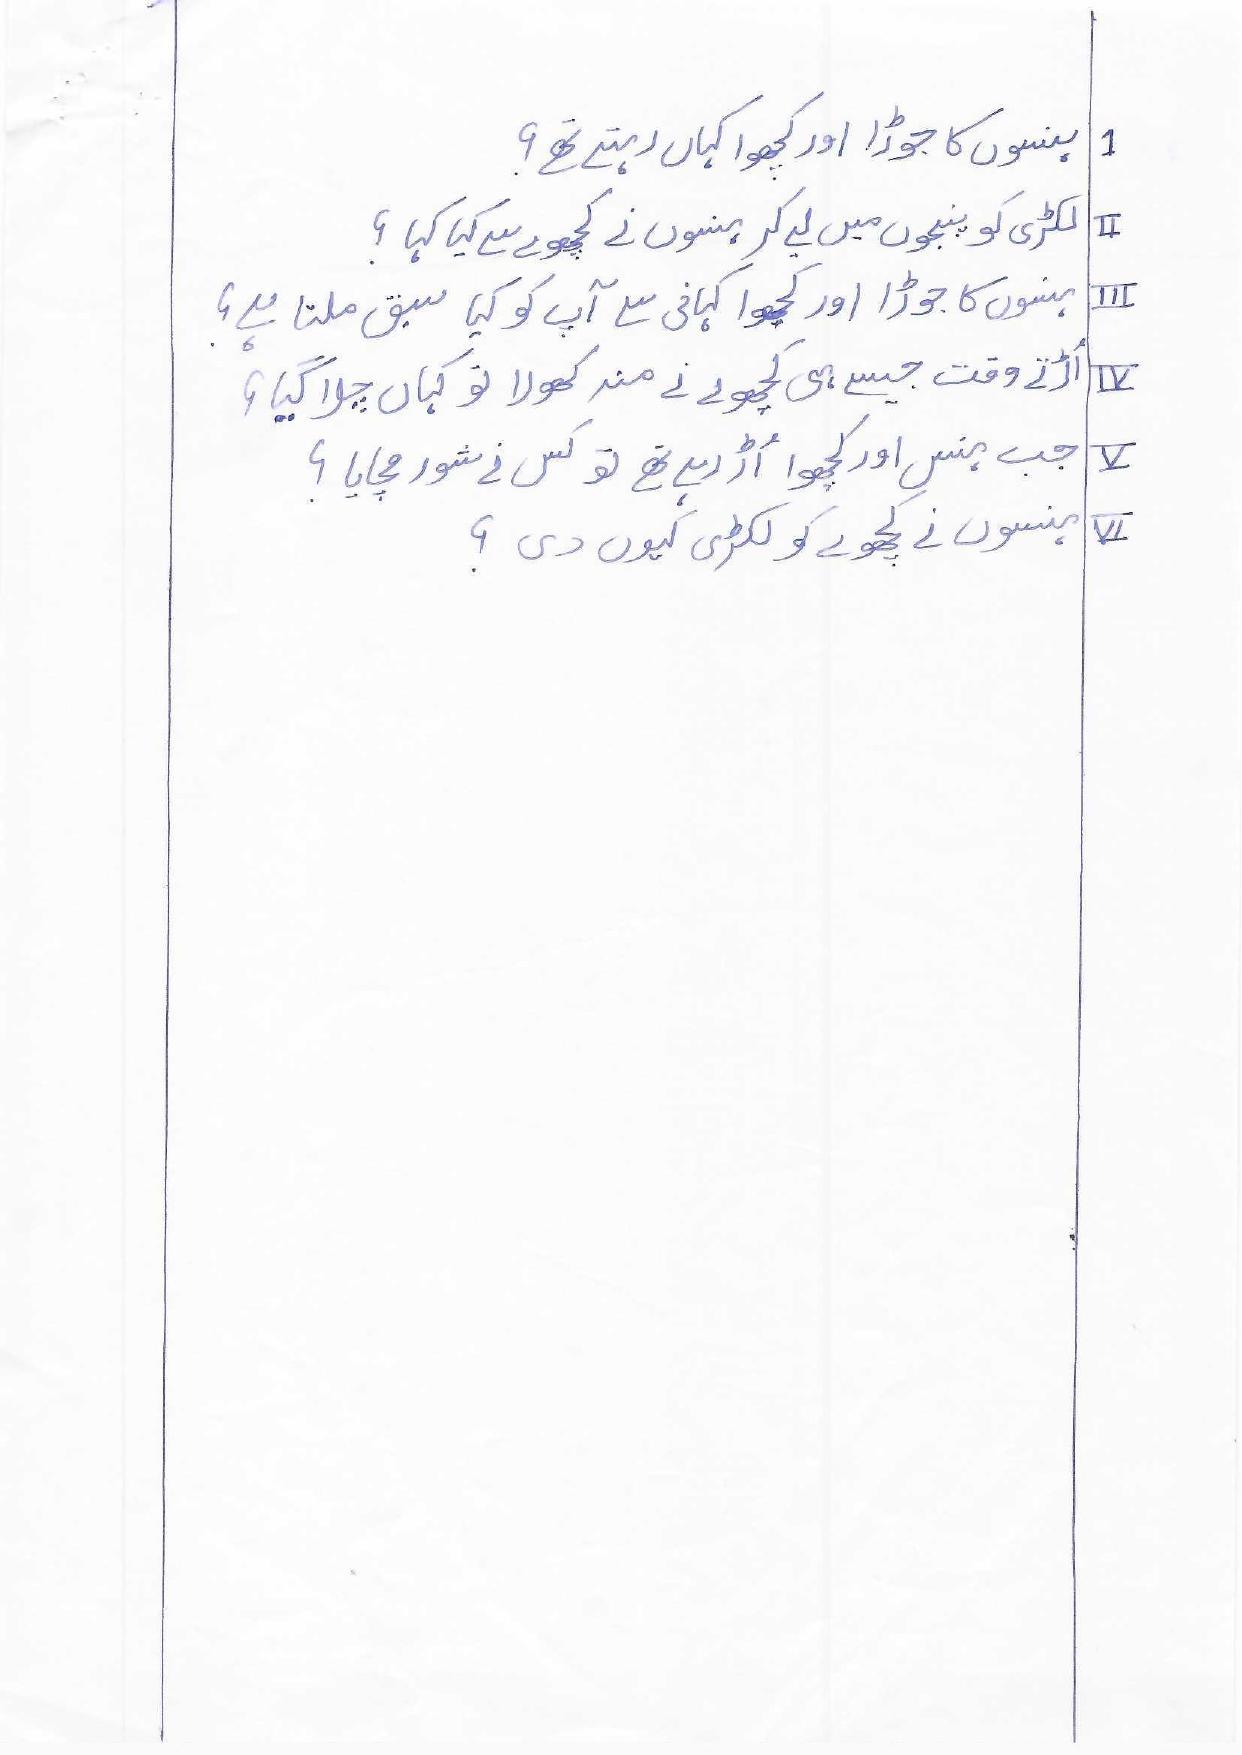 1 ہنسوں کا جوڑا اور کچھوا کہاں رہتے تھے؟
II لکڑی کو پنجوں میں لے کر ہنسوں نے کچھوے سے کیا کہا؟
III ہنسوں کا جوڑا اور کچھوا کہانی سے آپ کو کیا سبق ملتا ہے؟
IV اُڑتے وقت جیسے ہی کچھوے نے منہ کھولا تو کہاں چلا گیا؟
V جب ہنس اور کچھوا اُڑ رہے تھے تو کس نے شور مچایا؟
VI ہنسوں نے کچھوے کو لکڑی کیوں دی؟